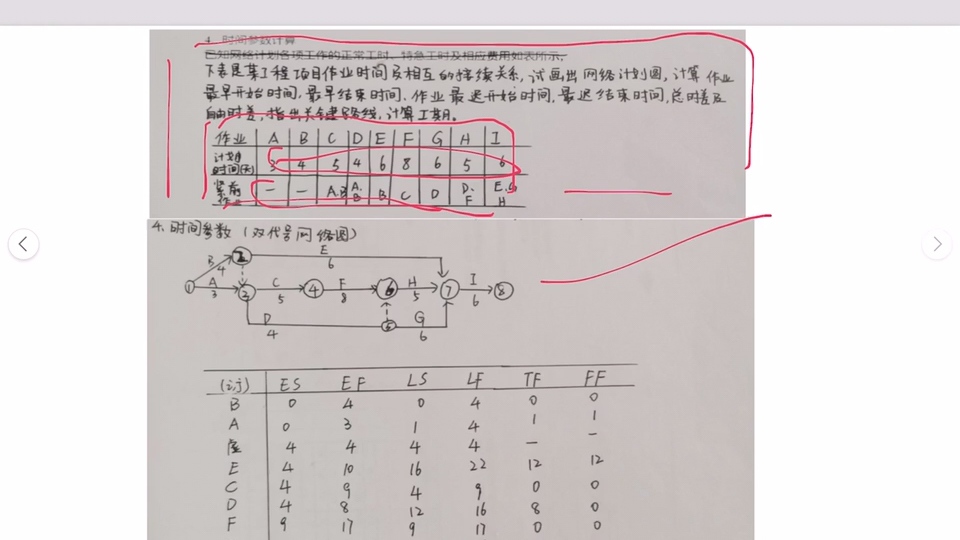 4. 时间参数计算
已知网络计划各项工作的正常工时、特急工时及相应费用如表所示,
下表是某工程项目作业时间及相互的持续关系,试画出网络计划图,计算作业
最早开始时间,最早结束时间、作业最迟开始时间,最迟结束时间,总时差及
自由时差,指出关键路线,计算工期。
作业 A B C D E F G H I
计划 时间(天) 3 4 5 4 6 8 6 5 6
紧前 作业 — — A.B A.B B C D D.F E.G H
4. 时间参数(双代号网络图)
E
6
B
4
1 A 3 3 C 5 4 F 8 6 H 5 7 I 6 8
D
4
5 G
6
ES EF LS LF TF FF
B 0 4 0 4 0 0
A 0 3 1 4 1 1
虚 4 4 4 4 — —
E 4 10 16 22 12 12
C 4 9 4 9 0 0
D 4 8 12 16 8 0
F 9 17 9 17 0 0